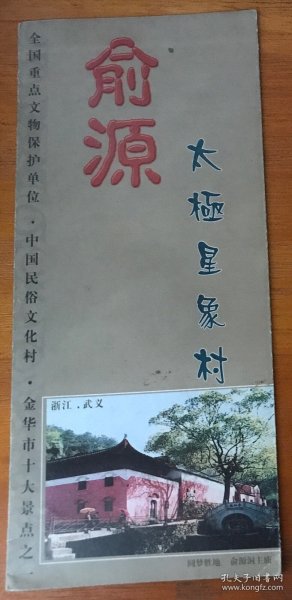 俞源
太極星象村
全国重点文物保护单位·中国民俗文化村·金华市十大景点之一
浙江.武义
圆梦胜地 俞源洞主庙
孔夫子旧书网